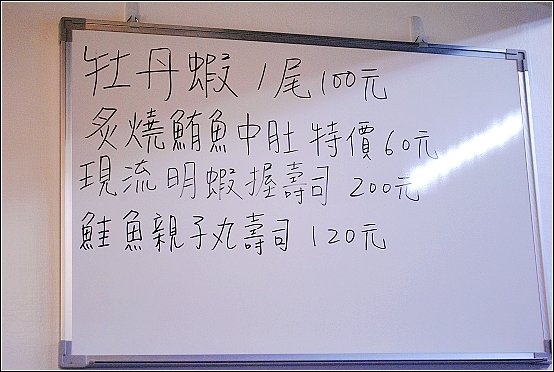 牡丹蝦 1尾100元
炙燒鮪魚中肚 特價60元
現流明蝦握壽司 200元
鮭魚親子丸壽司 120元